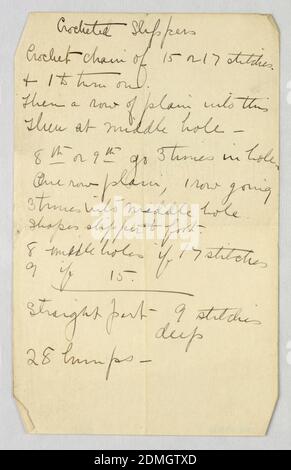 Crocheted Slippers
Crochet chain of 15 or 17 stitches.
+ 1 to turn on.
Then a row of plain into this
Then at middle hole -
8th or 9th go 3 times in hole
One row plain, 1 row going
3 times into middle hole.
Shapes slipper to foot
8 middle holes if 17 stitches
9 if 15.
Straight part 9 stitches
deep
28 bumps -
alamy
Image ID: 2DMGTXD
www.alamy.com